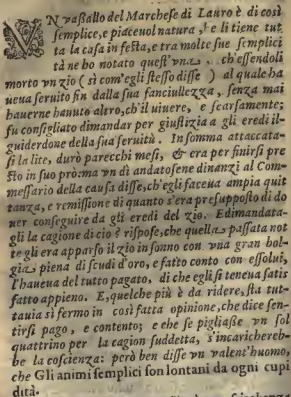 VN vaßallo del Marchese di Lauro è di così
semplice, e piaceuol natura, che li tiene tut
ta la casa in festa, e tra molte sue semplici
tà ne ho notato quest'vna, ch'essendoli
morto vn zio (sì com'egli stesso disse) al quale ha
ueua seruito fin dalla sua fanciullezza, senza mai
hauerne hauuto altro, ch'il uiuere, e scarsamente;
fu consigliato dimandar per giustizia a gli eredi il
guiderdone della sua seruitù. In somma attaccata-
si la lite, durò parecchi mesi, & era per finirsi pre
sto in suo prò: ma vn dì andatosene dinanzi al Com-
messario della causa disse, ch'egli faceua ampia quit
tanza, e remissione di quanto s'era presupposto di do
uer conseguire da gli eredi del zio. E dimandata-
gli la cagione di ciò è rispose, che quella passata not
te gli era apparso il zio in sonno con vna gran bol-
gia piena di scudi d'oro, e fatto conto con essolui,
l'haueua del tutto pagato, di che egli si teneua satis
fatto appieno. E, quelche più è da ridere, sta tut-
tauia sì fermo in così fatta opinione, che dice sen-
tirsi pago, e contento; e che se pigliaße vn sol
quattrino per la cagion suddetta, s'incaricherebe-
be la coscienza: però ben disse vn valent'huomo,
che Gli animi semplici son lontani da ogni cupi
dità.